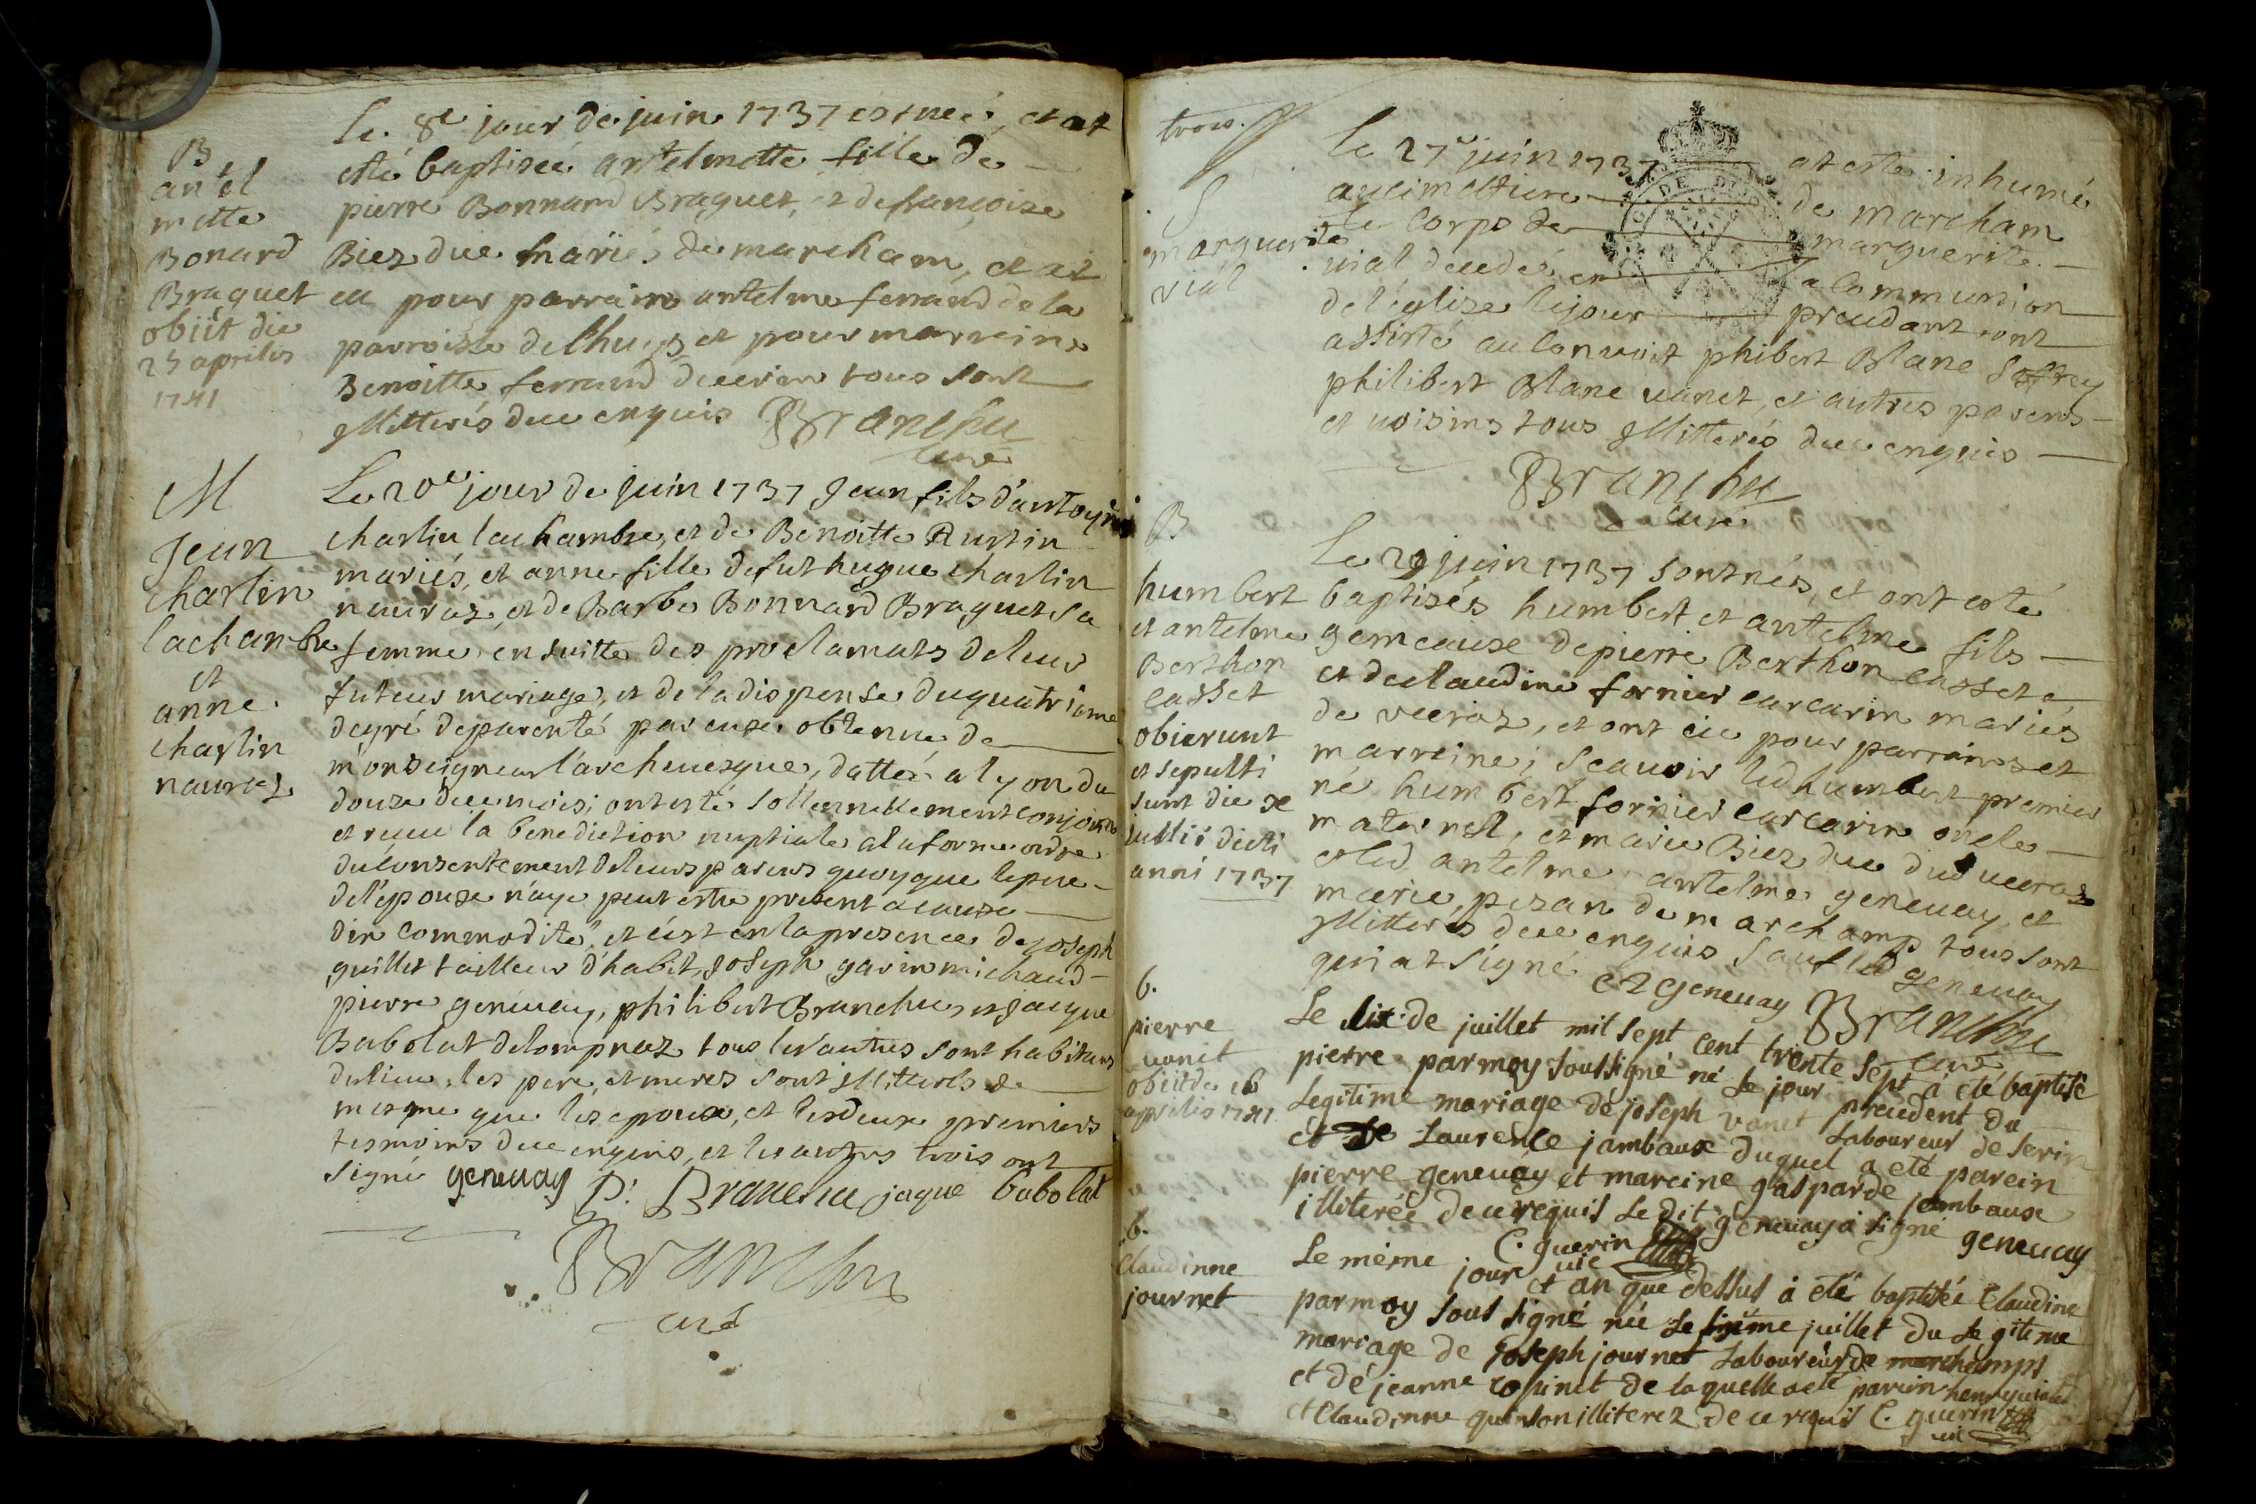 B
antel
mette
Bonard
Braquet
obiit die
25 aprilis
1741
Le 8e jour de juin 1737 est neé, et at
esté baptiseé antelmette fille de
pierre Bonnard Braquet, et de francoise
Biez due mariés de marcham, et at
eu pour parrain antelme ferrand de la
parroisse de lhuys et pour marreine
Benoitte ferrand tous sont
illitterés de ce enquis Branchu
curé
M
Jean
charlin
lachambre
et
anne
charlin
nauraz
Le 20e jour de juin 1737 Jean fils d'antoyne
charlin lachambre, et de Benoitte Rustin
mariés, et anne fille de fut hugue charlin
nauraz, et de Barbe Bonnard Braquet sa
femme, ensuitte des proclamats de leur
futeur mariage, et de la dispense du quatrieme
degré de parenté par eux obtenue de
monseigneur l'archeuesque, dattée a lyon du
douze de ce mois, ont esté sollemnellement conjoints
et receu la benediction nuptiale a la forme ord.re
du consentement de leurs parens quoyque le pere
de l'epouse n'aye peut estre present a cause
d'incommodité, et c'est en la presence de joseph
guillet tailleur d'habit, joseph garin michaud
pierre geneuay, philibert Branchu, et jacque
Babolat de lompnaz tous les autres sont habitans
du lieu, les pere et meres sont illitterés de
mesme que les epoux, et les deux premiers
tesmoins de ce enquis, et les autres trois ont
signé geneuay P. Branchu jaque babolat
Branchu
curé
trois.
S
marguerite
vial
Le 27e juin 1737 at esté inhumé
au cimettiere de marcham
le corps de marguerite
vial decedeé en la communion
de l'eglise le jour precedant ont
assisté au convoit phibert Blanc
philibert Blanc vanet, et autres parens
et voisins tous illitterés de ce enquis
Branchu
curé
B
humbert
et antelme
Berthon
casset
obierunt
et sepulti
sunt die 2e
jullii dicti
anni 1737
Le 29 juin 1737 sont nés, et ont esté
baptisés humbert et antelme fils
gemeaux de pierre Berthon casset
et de claudine fornier carcarin mariés
de veeraz, et ont eu pour parrains et
marreine; scavoir led humbert premier
né humbert fornier carcarin oncle
maternel, et marie Biez due dud veeraz
et led antelme antelme geneuay, et
marie pezan de marchamp tous sont
illitterés de ce enquis sauf led geneuay
qui at signé geneuay Branchu
curé
b.
pierre
vanet
obiit die 16
aprilis 1741
Le dix de juillet mil sept cent trente sept à été baptisé
pierre par moy soussigné né le jour precedent du
Legitime mariage de joseph vanet Laboureur de serin
et de Laurence jambaux duquel a eté parein
pierre geneuay et mareine gasparde jambaux
illiterée de ce requis Le dit geneuay a signé geneuay
C. guerin vic
b.
Claudinne
journet
Le même jour et an que dessus à été baptisée Claudine
par moy sous signé née Le sixime juillet du Legitime
mariage de joseph journet Laboureur de marchamps
et de jeanne copinet de laquelle a eté parein henry
et Claudinne quinson illiterez de ce requis C. guerin
vic